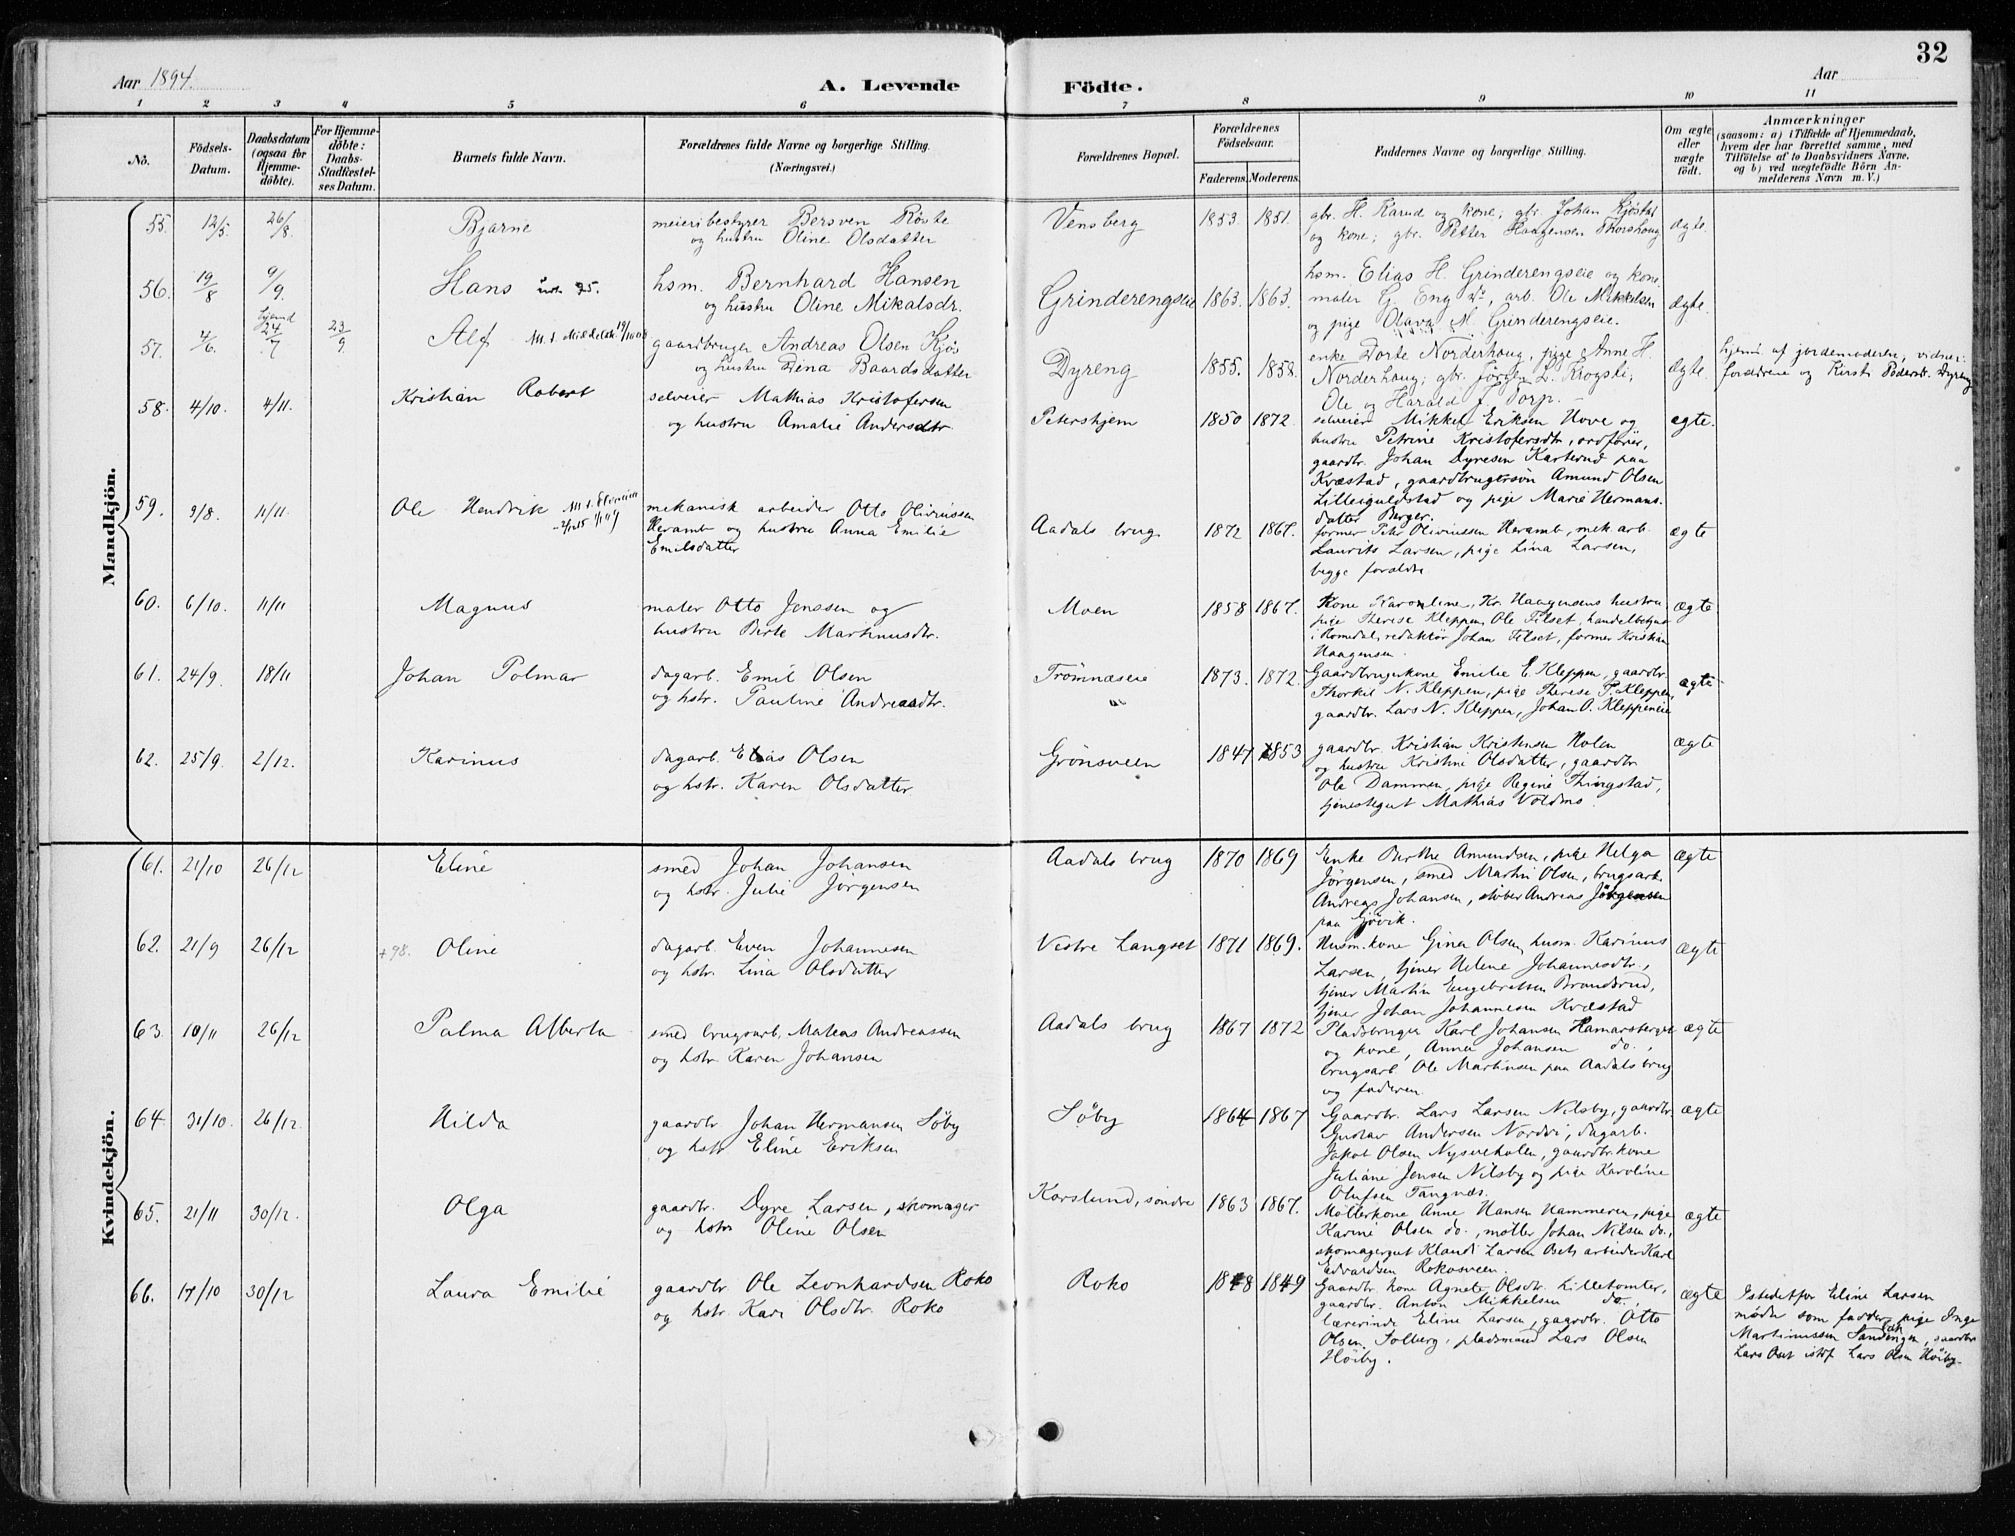 32
Aar 1894.
A. Levende Födte.
Aar
1 2 3 4 5 6 7 8 9 10 11
No.
Födsels-Datum.
Daabsdatum (ogsaa for Hjemme-döbte).
For Hjemme-döbte: Daabs-Stadfæstel-ses Datum.
Barnets fulde Navn.
Forældrenes fulde Navne og borgerlige Stilling. (Næringsvei.)
Forældrenes Bopæl.
Forældrenes Födselsaar.
Faderens. Moderens.
Faddernes Navne og borgerlige Stilling.
Om ægte eller uægte födt.
Anmærkninger
(saasom: a) i Tilfælde af Hjemmedaab, hvem der har forrettet samme, med Tilföielse af to Daabsvidners Navne, og b) ved uægtefödte Börn An-melderens Navn m. V.)
Mandkjön.
55. 12/5 26/8. Bjarne meieribestyrer Bersven Röste Vensberg 1853. 1851. gbr. H. Karud og kone; gbr. Johan ægte.
og hustru Oline Olsdatter
og kone; gbr. Petter Haagensen
56. 19/8 9/9. Hans hsm. Bernhard Hansen Grinderengseie 1863. 1863. hsm. Elias H. Grinderengseie og kone ægte.
og hustru Oline Mikalsdr.
maler G. Eng, arb. Ole Mikkelsen
og pige Olava M. Grinderengseie.
57. 4/6. hjemd 24/7 23/9 Alf gaardbruger Andreas Olsen Kjös Dyreng 1855. 1858. enke Dorte Norderhoug, pige Anne H. ægte. hjemd. af jordemoderen, vidner:
og hustru Dina Baardsdatter
Norderhaug; gbr. Jörgen L. Krogsti;
forældrene og Dyreng
Ole og Harald f. Torp.
58. 4/10. 4/11. Kristian Robert selveier Mathias Kristofersen Petershjem 1850 1872. selveier Mikkel Eriksen Hove og ægte.
og hustru Amalie Andersdtr.
hustru Petrine Kristofersdtr, ordförer,
gaardbr. Johan Dyresen Karterud paa
Kvæstad, gaardbrugersön Amund Olsen
Lilleiguldstad og pige Marie Hermans-
datter Berger.
59. 9/8. 11/11. Ole Hendrik mekanisk arbeider Otto Olivriussen Aadals brug. 1872 1867. former Petr Olivriussen Heramb, mek. arb. ægte
Heramb og hustru Anna Emilie
Emilsdatter
Laurits Larsen, pige Lina Larsen,
begge forældre.
60. 6/10. 11/11 Magnus maler Otto Jenssen og Moen 1858 1867. Kone Karonline, Kr. Haagensens hustru ægte
hustru Berte Martinusdtr.
pige Therese Kleppen, Ole Tilset, handelsbetjent
i Romedal, redaktör Johan Tilset, former Kristian
Haagensen.
61. 24/9. 18/11 Johan Polmar dagarb. Emil Olsen Trömnæseie 1873. 1872. Gaardbrugerkone Emilie E. Kleppen, gaardbr. ægte
og hstr. Pauline Andreasdtr.
Thorkil N. Kleppen, pige Therese P. Kleppen,
gaardbr. Lars N. Kleppen, Johan O. Kleppeneie
62. 25/9. 2/12. Karinus dagarb. Elias Olsen Grönsveen 1847 1853 gaardbr. Kristian Kristensen Holen ægte
og hstr. Karen Olsdatter
og hustru Kristine Olsdatter, gaardbr
Ole Dammen, pige Regine Thingstad,
tjenestegut Mathias Voldmo.
Kvindekjön.
61. 21/10 26/12 Eline smed Johan Johansen Aadals brug 1870 1869 Enke Berthe Amundsen, pige Helga ægte
og hstr. Julie Jörgensen
Jörgensen, smed Martin Olsen, brugsarb.
Andreas Johansen, stöber Andreas Jörgensen
paa Gjövik.
62. 21/9 26/12 +98. Oline dagarb. Even Johannesen Vestre Langset 1871 1869. Husm. kone Gina Olsen, husm. Karinus ægte
og hstr. Lina Olsdatter
Larsen, tjener Helene Johannesdtr.,
tjener Martin Engebretsen Brandsrud,
tjener Johan Johannesen Kvæstad
63. 10/11 26/12 Palma Alberta smed brugsarb. Mateas Andreassen Aadals brug 1867 1872 Pladsbruger Karl Johansen Hamarsberget ægte
og hstr. Karen Johansen
og kone, Anna Johansen do.,
brugsarb. Ole Martinsen paa Aadals brug
og faderen.
64. 31/10. 26/12. Hilda gaardbr Johan Hermansen Söby Söby 1864 1867 Gaardbr. Lars Larsen Nilsby, gaardbr. ægte
og hstr Eline Eriksen
Gustav Andersen Nordvi, dagarb.
Jakob Olsen Nysvehölen, gaardbr. kone
Juliane Jensen Nilsby og pige Karoline
Olufsen Tangnæs.
65. 21/11 30/12. Olga gaardbr. Dyre Larsen, skomager Korslund, söndre 1863 1867. Möllerkone Anne Hansen Hammeren, pige ægte
og hstr Oline Olsen
Karine Olsen do., möller Johan Nilsen do.,
skomagergut Klaudi Larsen Oset, arbeider Karl
Edvardsen Rokosveen.
66. 17/10 30/12 Laura Emilie gaardbr Ole Leonhardsen Roko Roko 1848 1849 Gaardbr kone Agnete Olsdtr. Lilletomter, ægte Istedetfor Eline Larsen
og hstr. Kari Olsdtr. Roko
gaardbr. Anton Mikkelsen do.,
mödte som fadder pige Inge
lærerinde Eline Larsen, gaardbr. Otto
Martinussen Sandengen, gaardbr
Olsen Solberg, pladsmand Lars Olsen
Lars Oset istf. Lars Olsen Höiby.
Höiby.